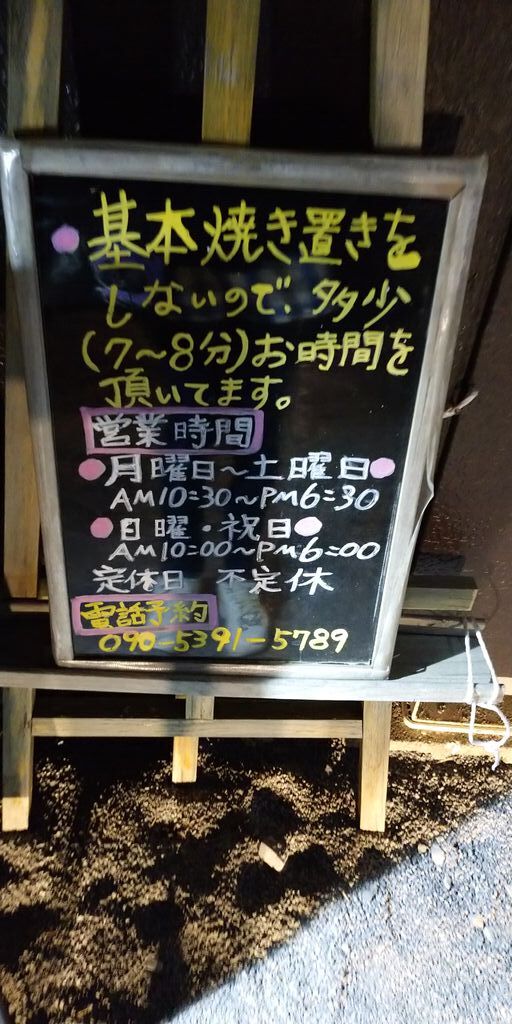 基本焼き置きを
しないので、多少
(7〜8分)お時間を
頂いてます。
営業時間
月曜日〜土曜日
AM10:30〜PM6:30
日曜・祝日
AM10:00〜PM6:00
定休日 不定休
電話予約
090-5391-5789